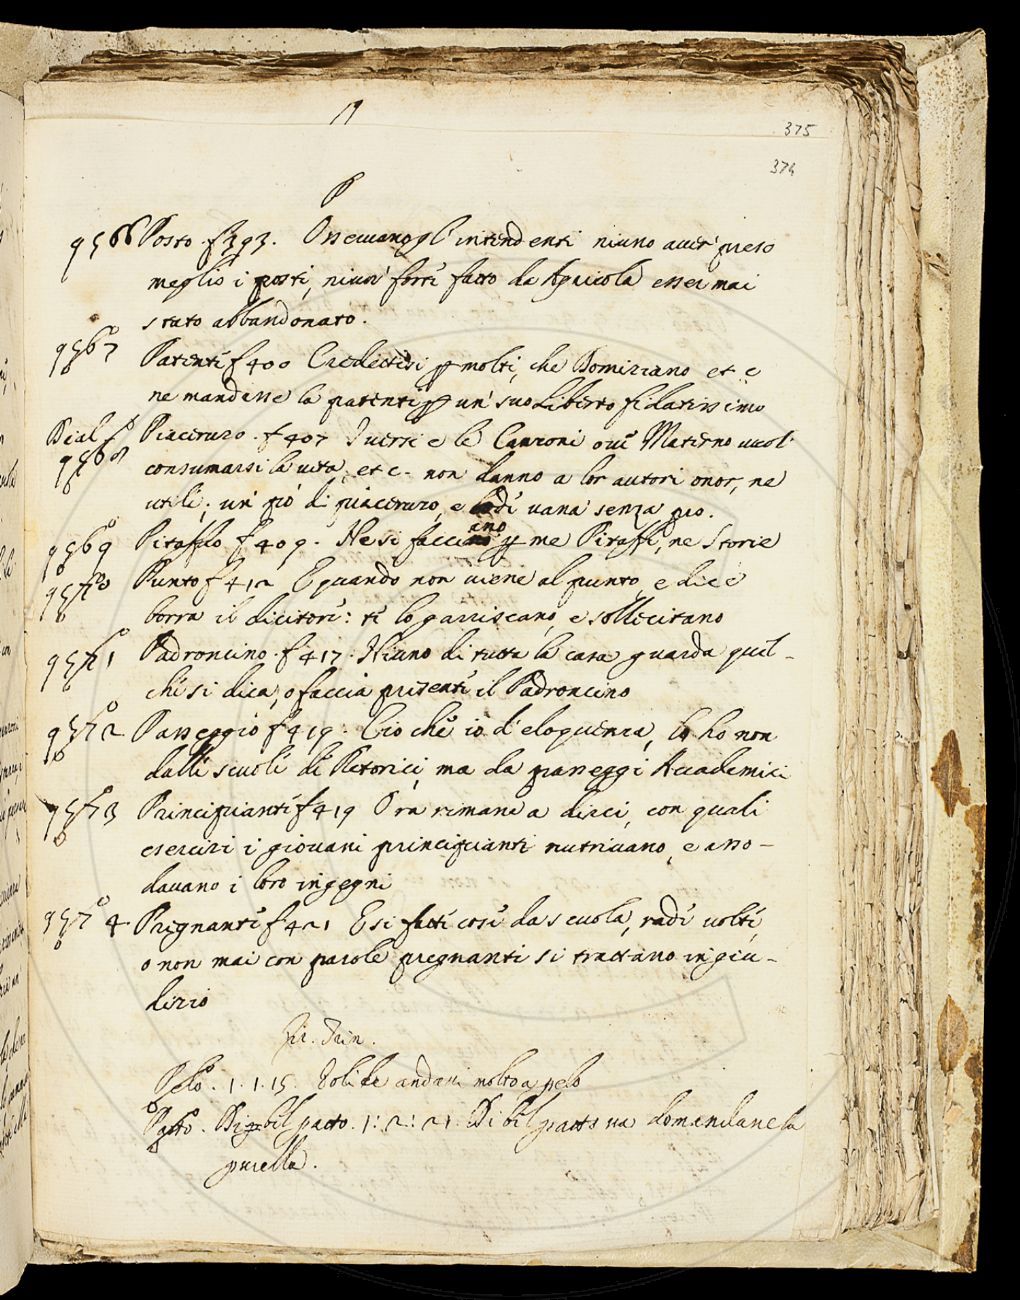 375
374
P
9566 Posto. f 393. Osseruano gl' intendenti niuno auer' preso
meglio i posti, niun' forte fatto da Agricola esser mai
stato abbandonato.
9567 Patente f 400 Credettesi p molti, che Domiziano etc
ne mandasse la patente p un' suo liberto fidatissimo
Dial.
9568 Piaceruzo. f 407 I versi e le Canzoni oue Materno vuol
consumarsi la vita, etc. non danno a lor autori onor, ne
utili; un' pò di piaceruzo, e lodi vana senza pro.
9569 Pitaffio f 409. Ne si facciano p me Pitaffi, ne Storie
9570 Punto f 412 E quando non viene al punto, e dice
borra il dicitore: ti lo garriscano, e sollecitano
9571 Padroncino. f 417. Niuno di tutta la casa guarda quel-
che si dica, o faccia presente il Padroncino
9572 Passeggio f 419. Ciò che io d' eloquenza, lo ho non
dalle scuole de Retorici, ma da passeggi Accademici
9573 Principiante f 419 Ora rimane a dirci, con quali
esercizi i giovani principianti nutriuano, e asso-
dauano i loro ingegni
9574 Pregnante f 421 E si fatte cose da scuola, rade volte,
o non mai con parole pregnanti si trattano in giu-
dizio
Fir. Trin.
Pelo. 1. 1. 15. andare molto a pelo
Patto. Di bel patto. 1: 2: 21. Di bel patto va domandane la
pulella.